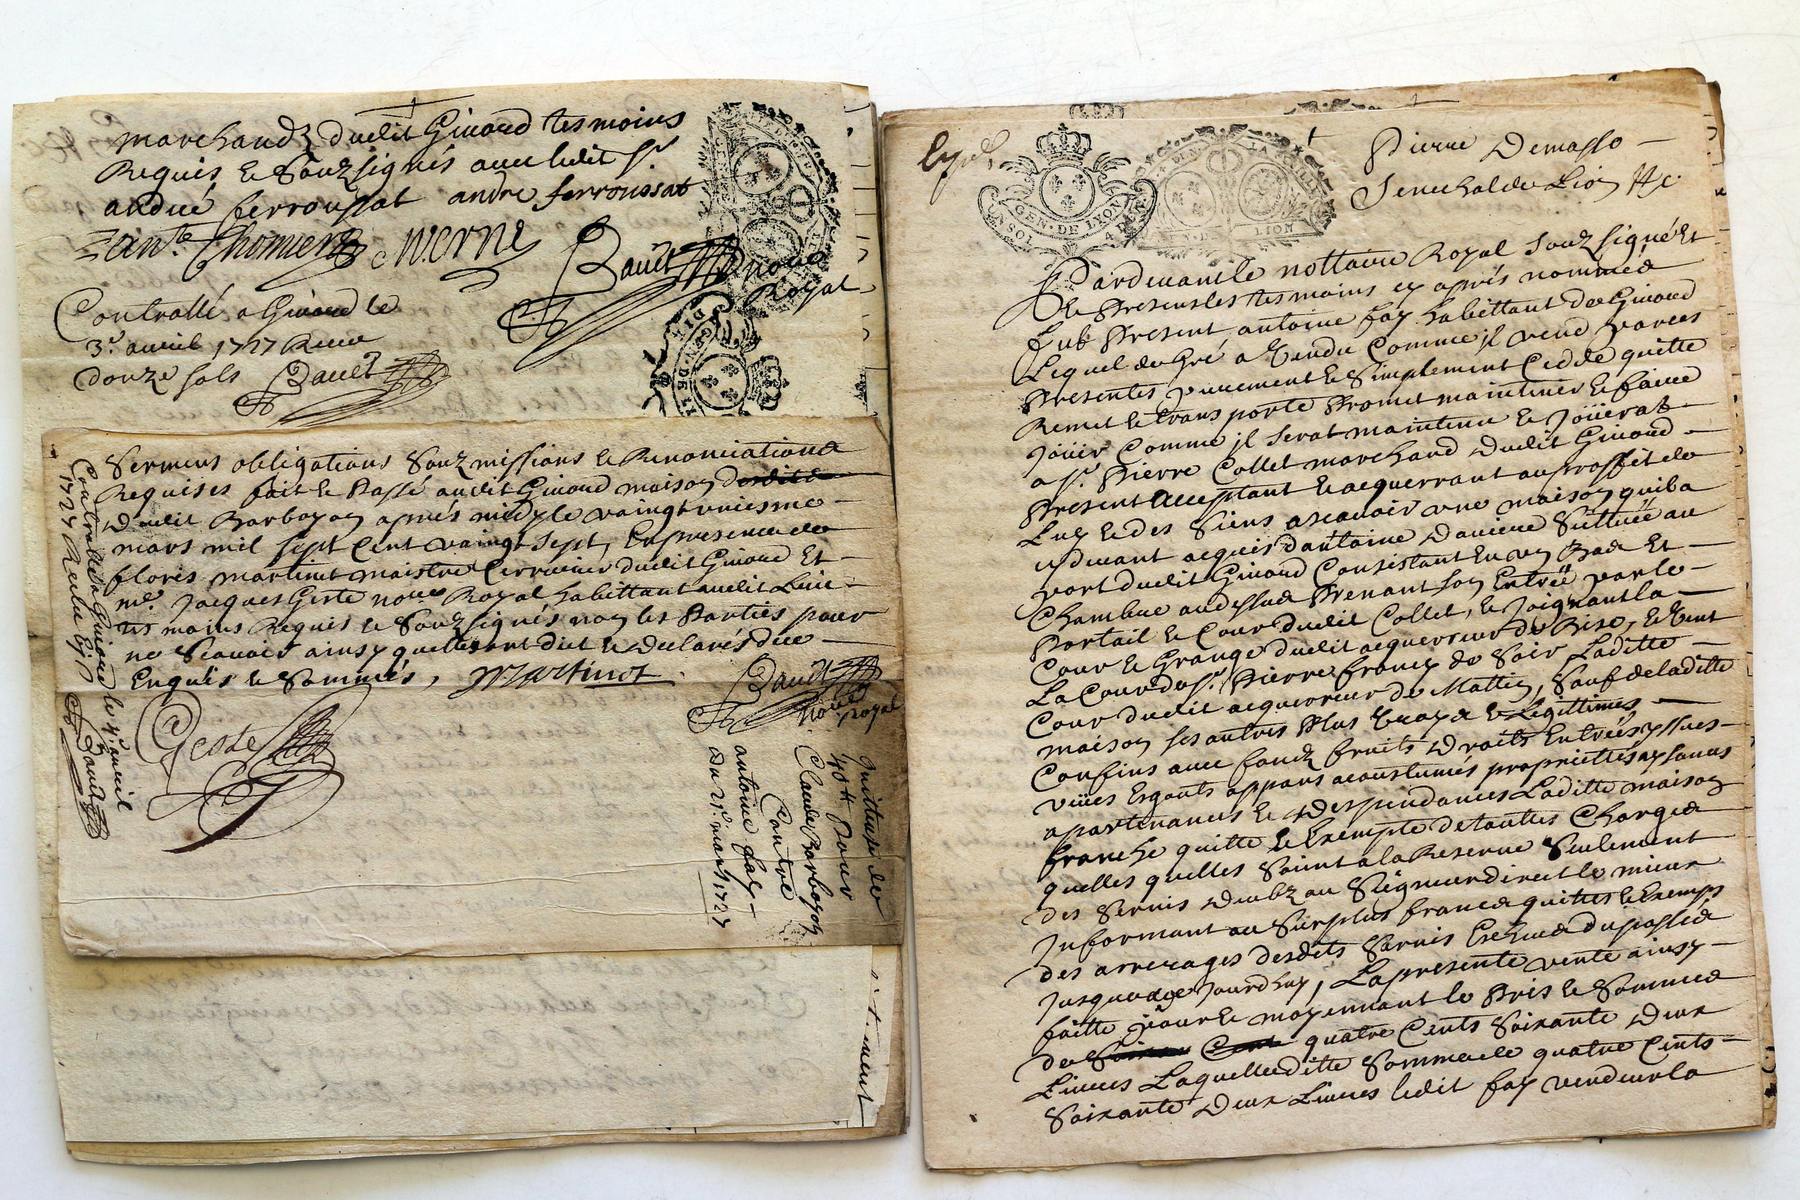 marchandz dudit Giuord tesmoins
Requis & Souzsignés auec ledit Sr.
andué ferroussat andre ferroussat
Chomier Werne Baudt
nore Royal
Controllé a Giuord le
3e. auril 1727 Receu
douze sols Baudt
Serment obligations Souzmissions & Renonciations
Requises fait & Passé audit Giuord maison
dudit Barboyon apres midy le vaingt vniesme
mars mil sept Cent vaingt Sept, En presence de
floris martinet maistre dudit Giuord Et
me. Jacques Geste nore Royal habittant audit Lieu
tesmoins Requis & Souzsignés non les Parties pour
ne Scauoir ainsy quelles ont dict & declarés de ce
Enquis & Sommés, Martinet
Baudt
nore Royal
Geste
Controllé a Giuord le 4e auril
1727 Receu
Baudt
Quittance de
40 tt Pour
Claude Barboyon
Contre
antoine fay
du 21e. mars 1727
GEN. DE LYON
UN SOL 4 DEN
LA VILLE
LION
Pierre Demasso
Senechal de Lion &c
Pardeuant le nottaire Royal Souzsigné Et
de Presens les tesmoins cy aprés nommés
fut Present antoine fay habittant de Giuord
Lequel de Gré a Vendu Comme jl vend par ces
Presentes purement & Simplement Cedde quitte
Remet & transporte Promet maintenir & faire
Joüir Comme jl serat maintenu & Joüirat
a Sr. Pierre Collet marchand dudit Giuord
Present acceptant & acquerrant au proffit de
Luy & des Siens ascauoir vne maison quil a
cydeuant acquis dantoine Daniere Scittuée au
port dudit Giuord Consistant En vn Bas Et
Chambre au dessus Prenant son Entrée par le
Portail & Cour dudit Collet, & Joignant la
Cour & Grange dudit acquerreur de Bize, & Vent
La Cour du Sr. Pierre francy de Soir Laditte
Cour dudit acquerreur de Mattin, Sauf de laditte
maison ses autres Plus Vrays & Legittimes
Confins auec fondz fruits Droits Entrées yssues
vüies Esgants appans acoustumés proprietés aysances
apartenances & Despendances Laditte maison
franche quitte & Exempte de touttes Charges
quelles quelles Soint a la Reserue Seulement
des Seruis dubz au Seigneur direct le mieux
Informant au Surplus franca quittes & Exemps
des arrerages desdits Seruis Escheus du passé
Jusqua ce Jourdhuy, La presente vente ainsy
faitte pour & moyennant le Pris & Somme
de quatre Cents Soixante Deux
Liures Laquelleditte Somme de quatre Cents
Soixante Deux Liures ledit fay vendeur la